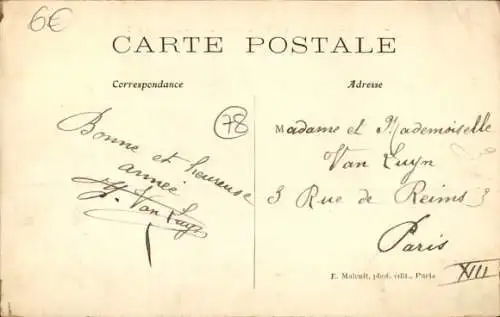 6€
CARTE POSTALE
Correspondance
Adresse
78
Bonne et heureuse
année
Van Luyn
Madame et Mademoiselle
Van Luyn
3 Rue de Reims 3
Paris
XIII
E. Malcuit, phot. édit., Paris